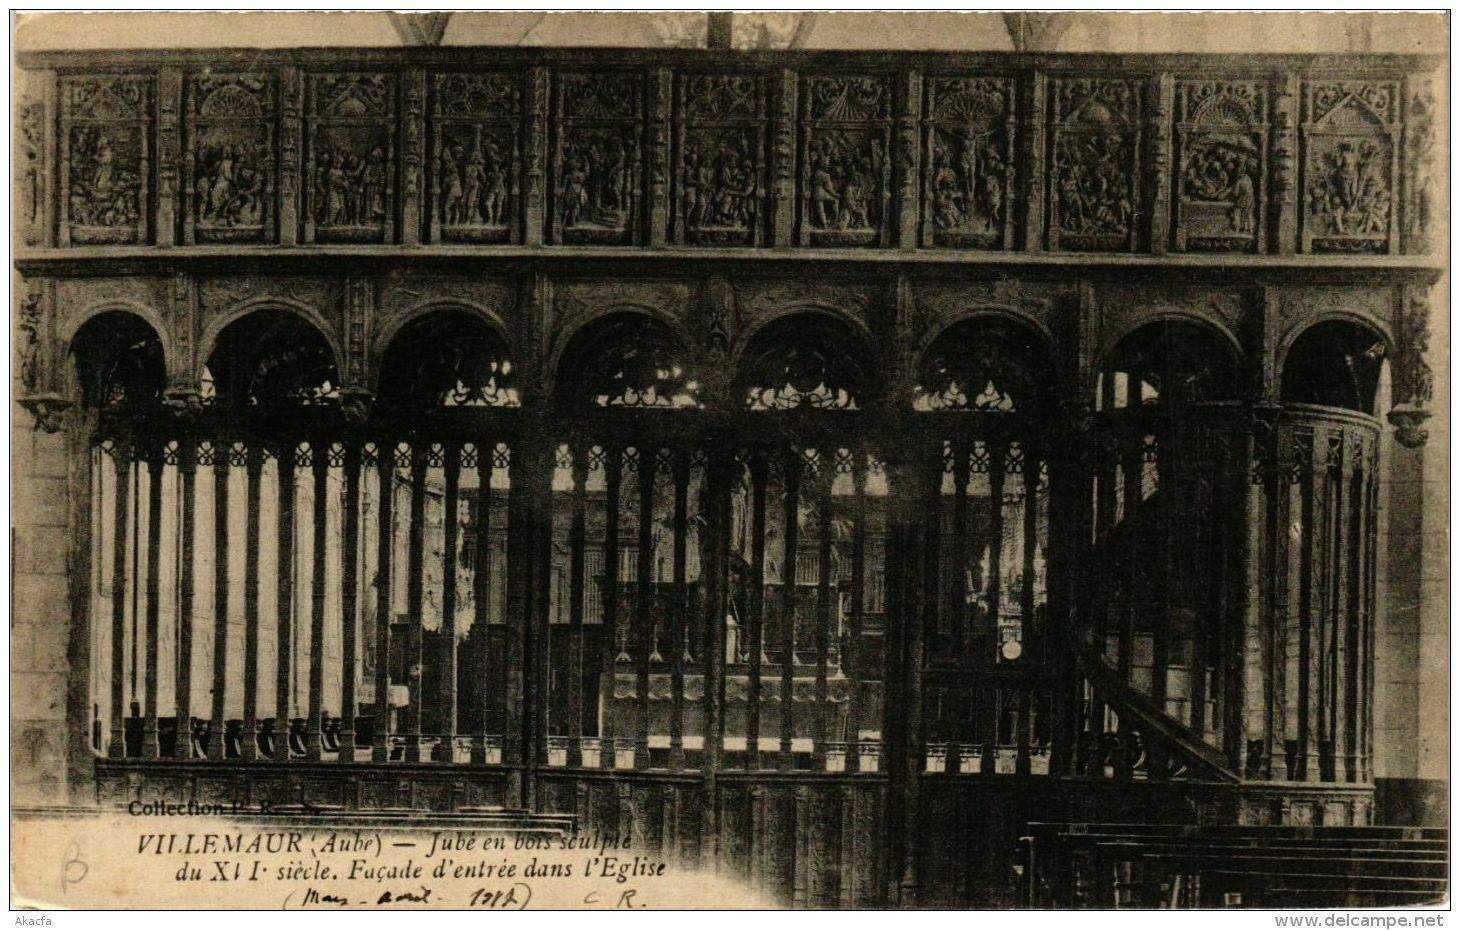 Collection P. R. S.
VILLEMAUR (Aube) — Jubé en bois sculpté
du XVIe siècle. Façade d'entrée dans l'Eglise
(Mars - avril - C R.
B
Akacfa
www.delcampe.net